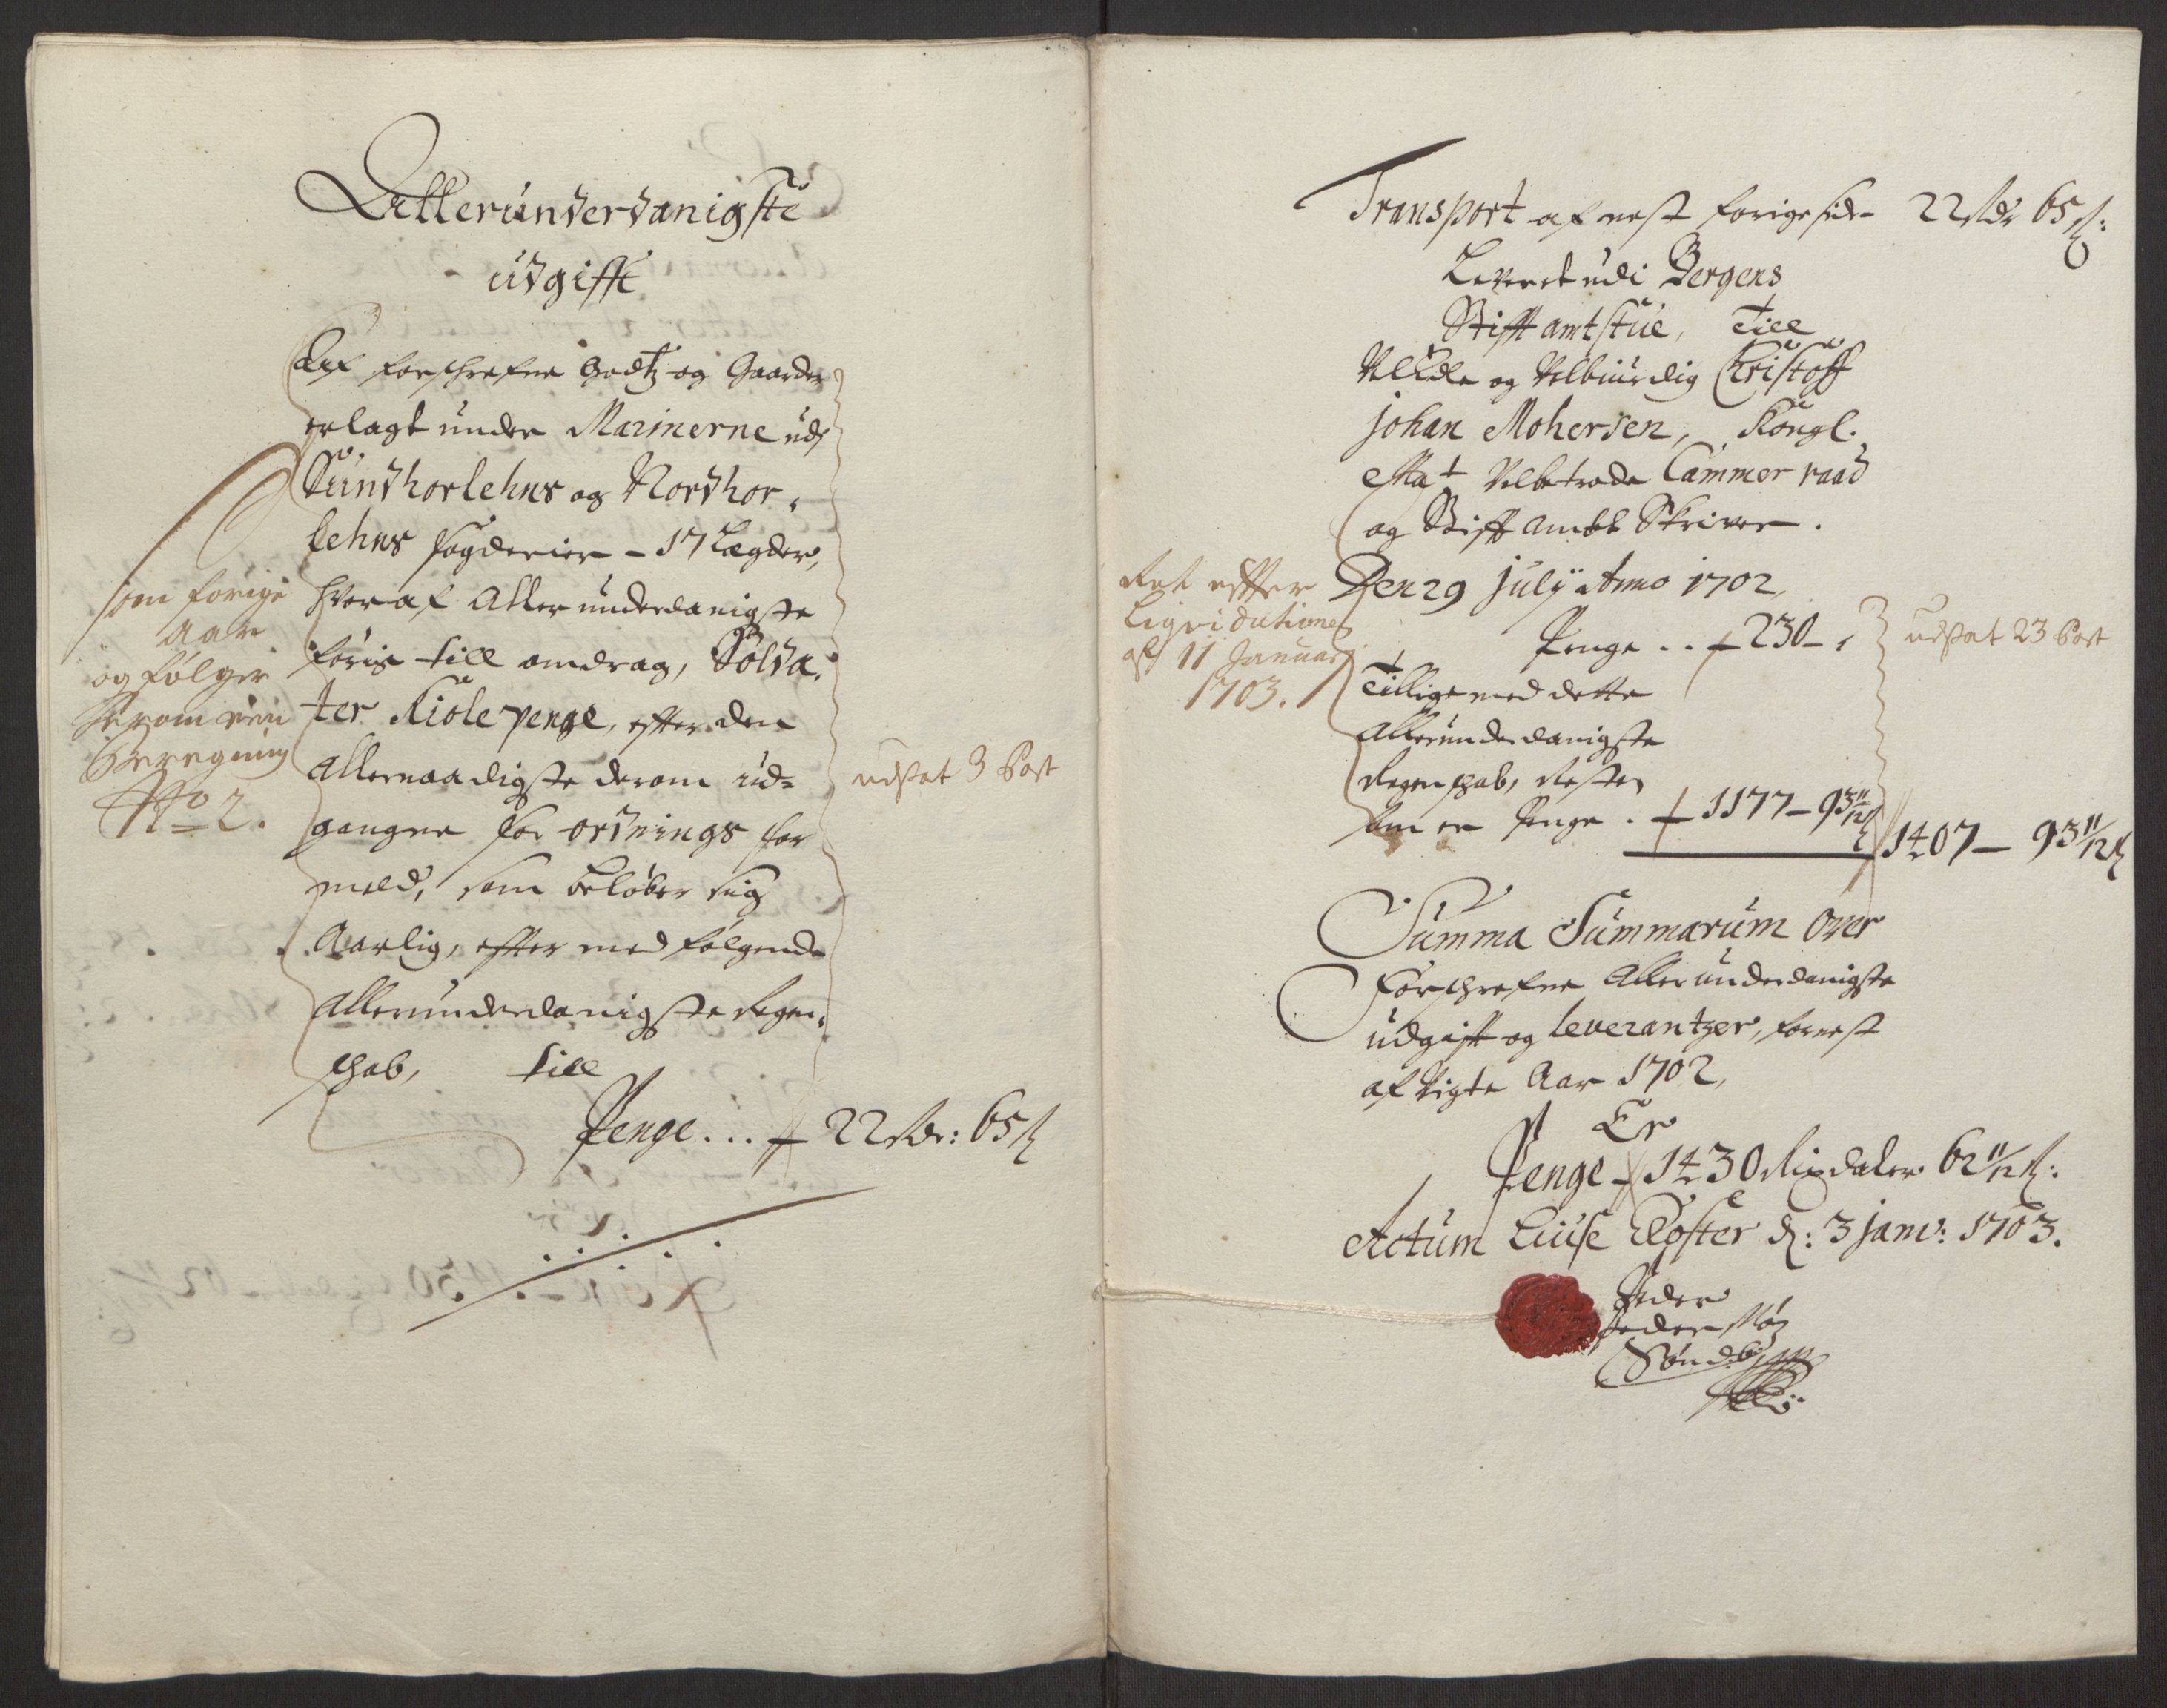 Allerunderdanigste
udgifft
Aff forschrefne Godtz og Gaarder
erlagt under Marinerne udj
Sundhorlehns og Nordhor,
lehns fogderier - 17 Lægder,
hvor af Aller underdanigste
føris till omdrag, Solda,
ter Kiole penge, effter den
allernaadigste derom ud=
gangne for-ordnings for
meld, som beløber sig
Aarlig, effter med følgende
allerunderdanigste Regen,
schab, till
Penge ... 22 Rdr: 65 ß
som forige
aar
og følger
herom een
Beregning
No 2.
udsat 3 Post
Transport af nest forige side 22 Rdr 65 ß:
Leveret udi Bergens
Stifft amtstue, till
Vel Edle og Velbiurdig Christoff
Johan Mohersen, Kongl.
Mayt Velbetrode Cammer raad
og Stifft ambt Skriver.
Den 29 july Anno 1702,
Penge .. 230 - ,
Tillige med dette
allerunderdanigste
Regenschab, Rester
som er Penge . 1177 - 93 11/12 ß
1407 - 93 11/12 ß
Ret effter
Liqvidationen
af 11 Januarj
1703.
udsat 23 Post
Summa Summarum over
forschrefne Allerunderdanigste
udgifft og leverantzer, for nest
afvigte Aar 1702,
Er
Penge - 1430 Rixdaler 62 11/12 ß:
Actum Liuse Closter d: 3 janv: 1703.
Peder
Pedersøn